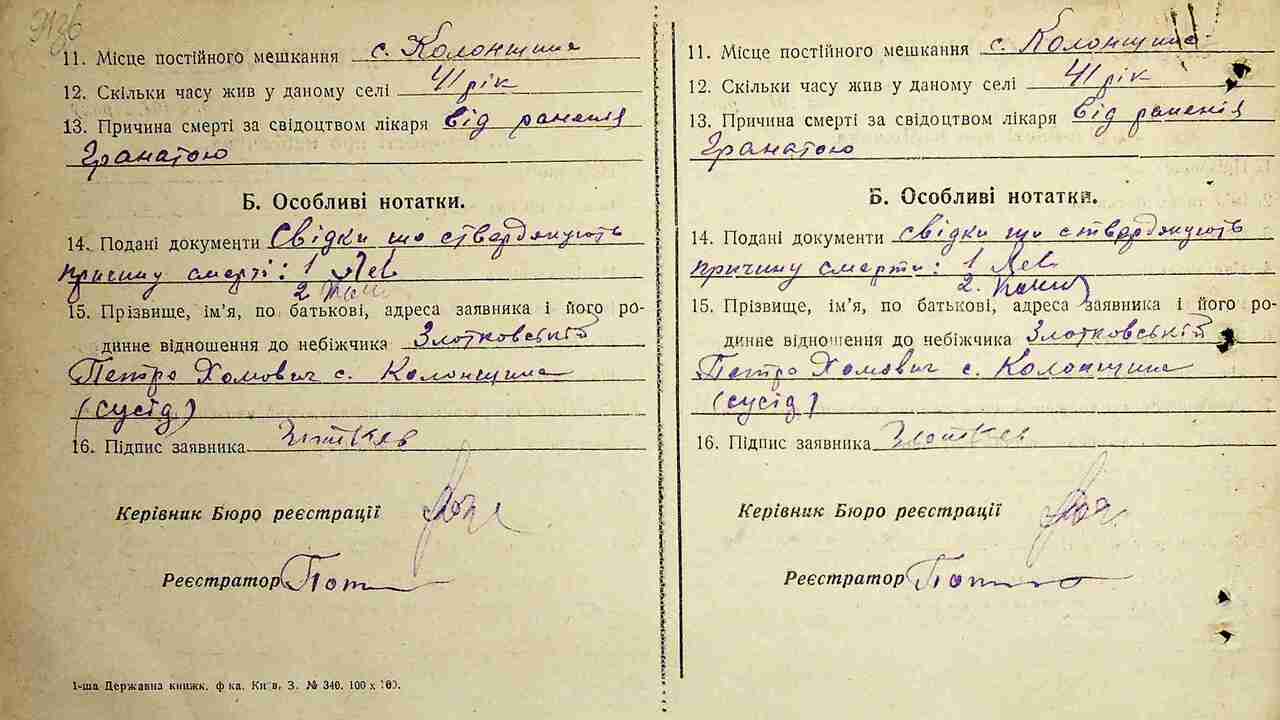 11. Місце постійного мешкання с. Колонщина
12. Скільки часу жив у даному селі 41 рік
13. Причина смерті за свідоцтвом лікаря від раненія
гранатою
Б. Особливі нотатки.
14. Подані документи Свідки що стверджують
причину смерті: 1
2
15. Прізвище, ім’я, по батькові, адреса заявника і його ро-
динне відношення до небіжчика Злотковський
Петро Хомович с. Колонщина
(сусід)
16. Підпис заявника
Керівник Бюро реєстрації
Реєстратор
1-ша Державна книжк. ф-ка. Київ. З. № 340. 100 х 100.
11. Місце постійного мешкання с. Колонщина
12. Скільки часу жив у даному селі 41 рік
13. Причина смерті за свідоцтвом лікаря від раненія
гранатою
Б. Особливі нотатки.
14. Подані документи свідки що стверджують
причину смерти: 1
2.
15. Прізвище, ім’я, по батькові, адреса заявника і його ро-
динне відношення до небіжчика Злотковський
Петро Хомович с. Колонщина
(сусід)
16. Підпис заявника
Керівник Бюро реєстрації
Реєстратор